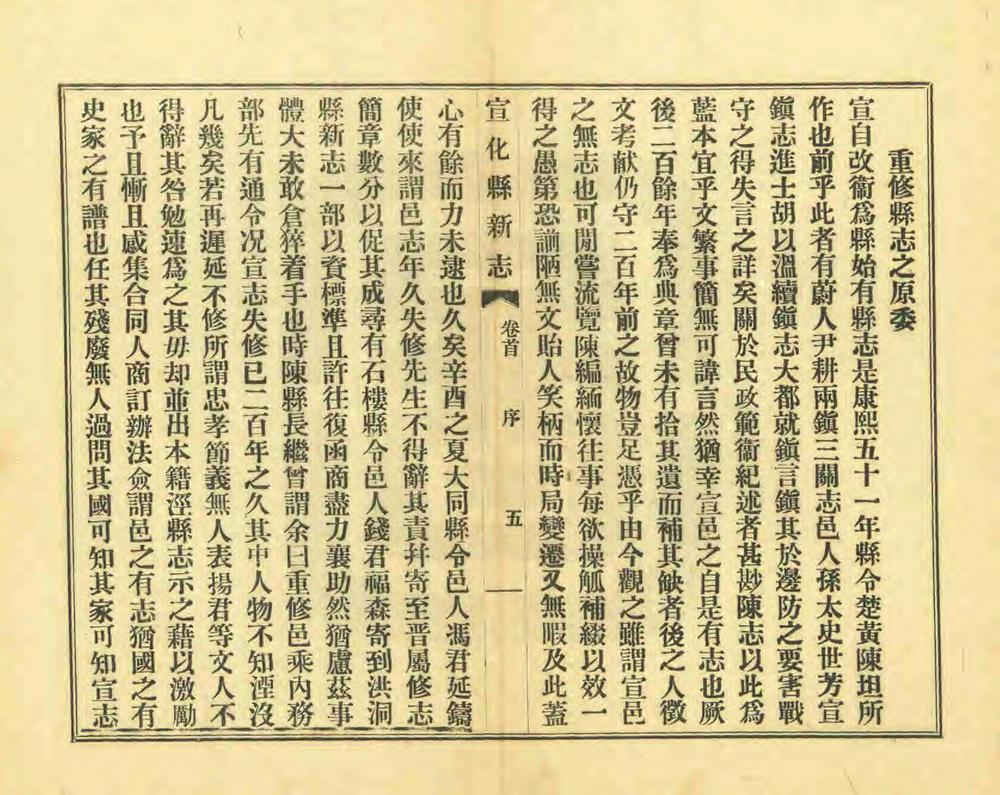 重修縣志之原委
宣自改衞爲縣始有縣志是康熙五十一年縣令楚黃陳坦所
作也前乎此者有蔚人尹耕兩鎭三關志邑人孫太史世芳宣
鎭志進士胡以溫續鎭志大都就鎭言鎭其於邊防之要害戰
守之得失言之詳矣關於民政範衞紀述者甚尠陳志以此爲
藍本宜乎文繁事簡無可諱言然猶幸宣邑之自是有志也厥
後二百餘年奉爲典章曾未有拾其遺而補其缺者後之人徵
文考獻仍守二百年前之故物豈足憑乎由今觀之雖謂宣邑
之無志也可閒嘗流覽陳編緬懷往事每欲操觚補綴以效一
得之愚第恐謭陋無文貽人笑柄而時局變遷又無暇及此蓋
宣化縣新志 卷首 序 五
心有餘而力未逮也久矣辛酉之夏大同縣令邑人馮君延鑄
使使來謂邑志年久失修先生不得辭其責幷寄至晋屬修志
簡章數分以促其成尋有石樓縣令邑人錢君福森寄到洪洞
縣新志一部以資標準且許往復函商盡力襄助然猶慮茲事
體大未敢倉猝着手也時陳縣長繼曾謂余曰重修邑乘內務
部先有通令况宣志失修已二百年之久其中人物不知湮沒
凡幾矣若再遲延不修所謂忠孝節義無人表揚君等文人不
得辭其咎勉速爲之其毋却並出本籍涇縣志示之藉以激勵
也予且慚且感集合同人商訂辦法僉謂邑之有志猶國之有
史家之有譜也任其殘廢無人過問其國可知其家可知宣志